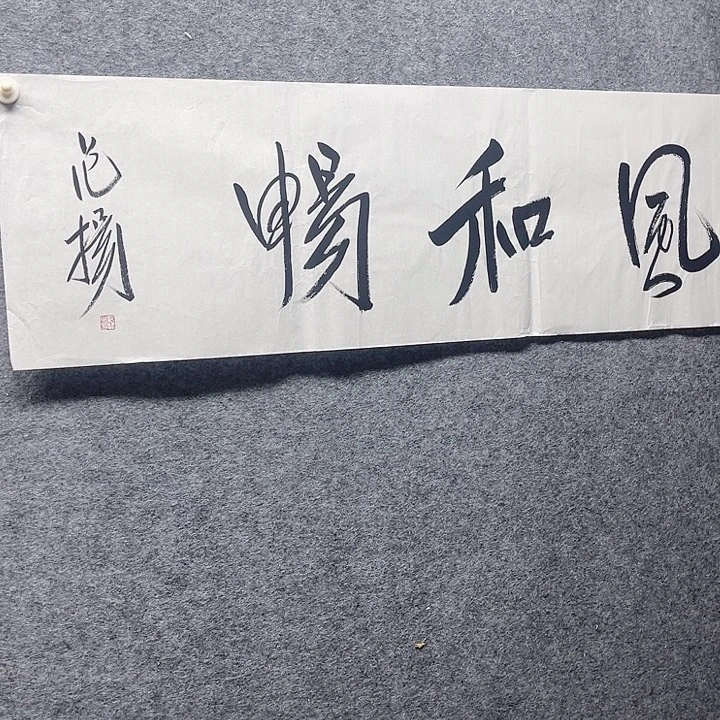 風和暢
范揚